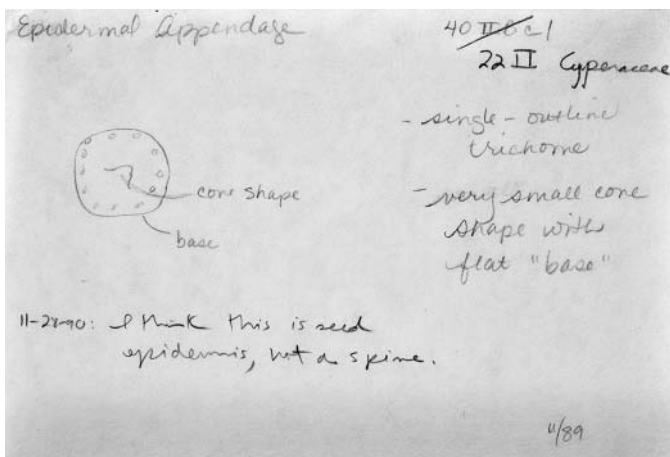 Epidermal Appendage
40 II b c 1
22 II Cyperaceae
- single-outline
trichome
- very small cone
shape with
flat "base"
cone shape
base
11-28-90: I think this is seed
epidermis, not a spine.
11/89